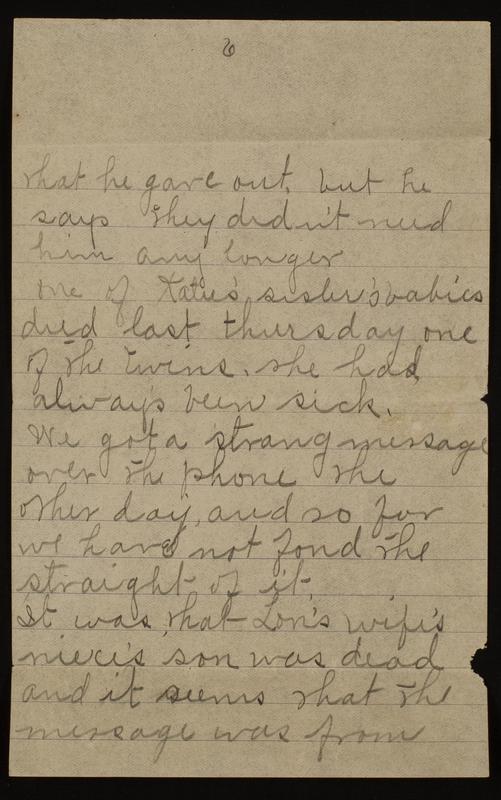 6
that he gave out, but he
says they didn't need
him any longer
one of Katie's sister's babies
died last thursday one
of the twins. she had
always been sick.
We got a strang message
over the phone the
other day, and so far
we have not fond the
straight of it.
It was that Lon's wife's
niece's son was dead
and it seems that the
message was from